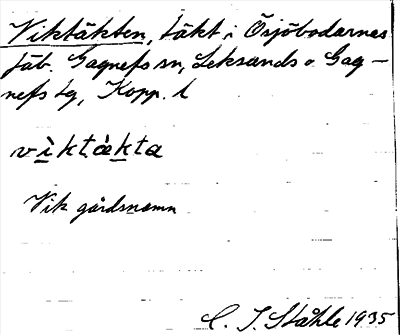 Viktäkten, täkt i Ösjöbodarnes
fäb. Gagnefs sn, Leksands o. Gag-
nefs tg, Kopp. l
vìktàkta
Vik gårdsnamn
C. I. Ståhle 1935